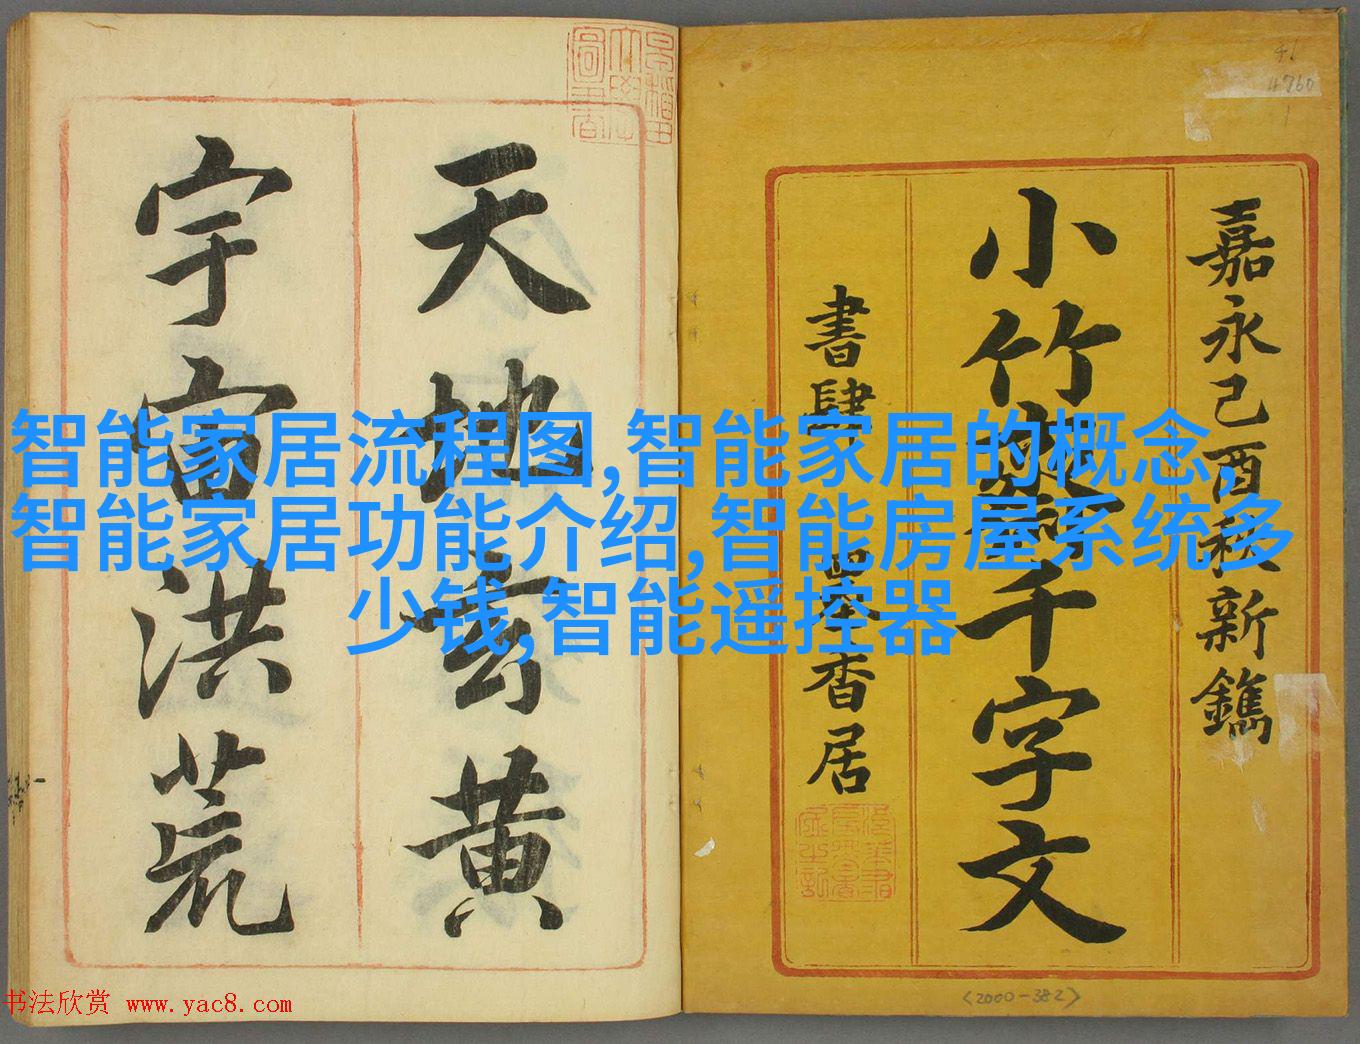 嘉永己酉秋新鐫
小竹散千字文
書肆 墨香居
天地玄黄
宇宙洪荒
智能家居流程图,智能家居的概念,
智能家居功能介绍,智能房屋系统多
少钱,智能遥控器
46
4760
1
<2000-382>
书法欣赏 www.yac8.com